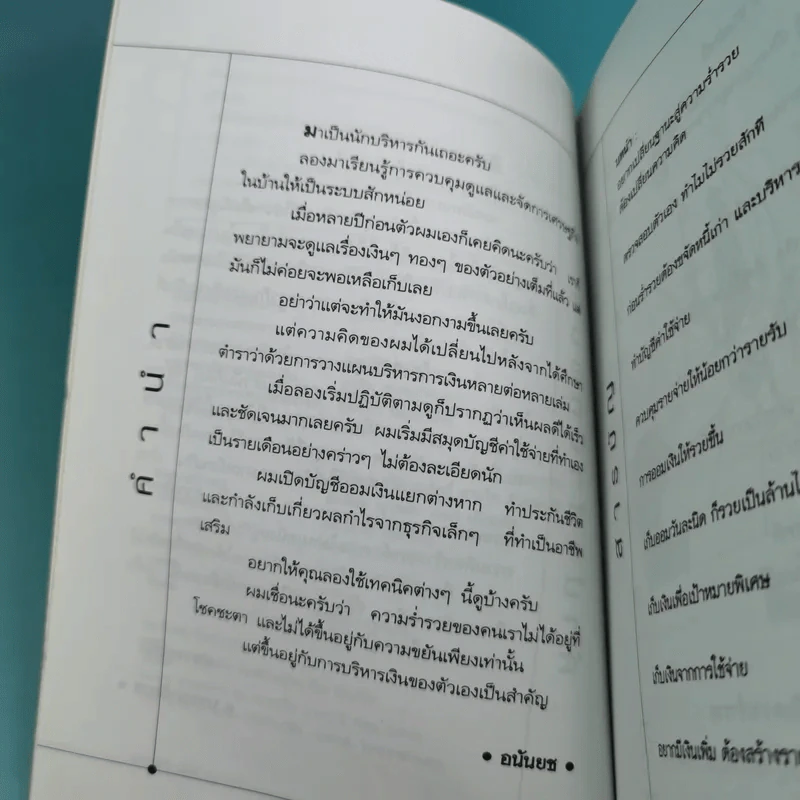 คำนำ
มาเป็นนักบริหารกันเถอะครับ
ลองมาเรียนรู้การควบคุมดูแลและจัดการเศรษฐกิจ
ในบ้านให้เป็นระบบสักหน่อย
เมื่อหลายปีก่อนตัวผมเองก็เคยคิดนะครับว่า
พยายามจะดูแลเรื่องเงินๆ ทองๆ ของตัวอย่างเต็มที่แล้ว
มันก็ไม่ค่อยจะพอเหลือเก็บเลย
อย่าว่าแต่จะทำให้มันงอกงามขึ้นเลยครับ
แต่ความคิดของผมได้เปลี่ยนไปหลังจากได้ศึกษา
ตำราว่าด้วยการวางแผนบริหารการเงินหลายต่อหลายเล่ม
เมื่อลองเริ่มปฏิบัติตามดูก็ปรากฏว่าเห็นผลดีได้เร็ว
และชัดเจนมากเลยครับ ผมเริ่มมีสมุดบัญชีค่าใช้จ่ายที่ทำเอง
เป็นรายเดือนอย่างคร่าวๆ ไม่ต้องละเอียดนัก
ผมเปิดบัญชีออมเงินแยกต่างหาก ทำประกันชีวิต
และกำลังเก็บเกี่ยวผลกำไรจากธุรกิจเล็กๆ ที่ทำเป็นอาชีพ
เสริม
อยากให้คุณลองใช้เทคนิคต่างๆ นี้ดูบ้างครับ
ผมเชื่อนะครับว่า ความร่ำรวยของคนเราไม่ได้อยู่ที่
โชคชะตา และไม่ได้ขึ้นอยู่กับความขยันเพียงเท่านั้น
แต่ขึ้นอยู่กับการบริหารเงินของตัวเองเป็นสำคัญ
• อนันยช •
สารบัญ
บทนำ :
อยากเปลี่ยนฐานะสู่ความร่ำรวย
ต้องเปลี่ยนความคิด
ตรวจสอบตัวเอง ทำไมไม่รวยสักที
ก่อนร่ำรวยต้องขจัดหนี้เก่า และบริหาร
ทำบัญชีค่าใช้จ่าย
ควบคุมรายจ่ายให้น้อยกว่ารายรับ
การออมเงินให้รวยขึ้น
เก็บออมวันละนิด ก็รวยเป็นล้านได้
เก็บเงินเพื่อเป้าหมายพิเศษ
เก็บเงินจากการใช้จ่าย
อยากมีเงินเพิ่ม ต้องสร้าง